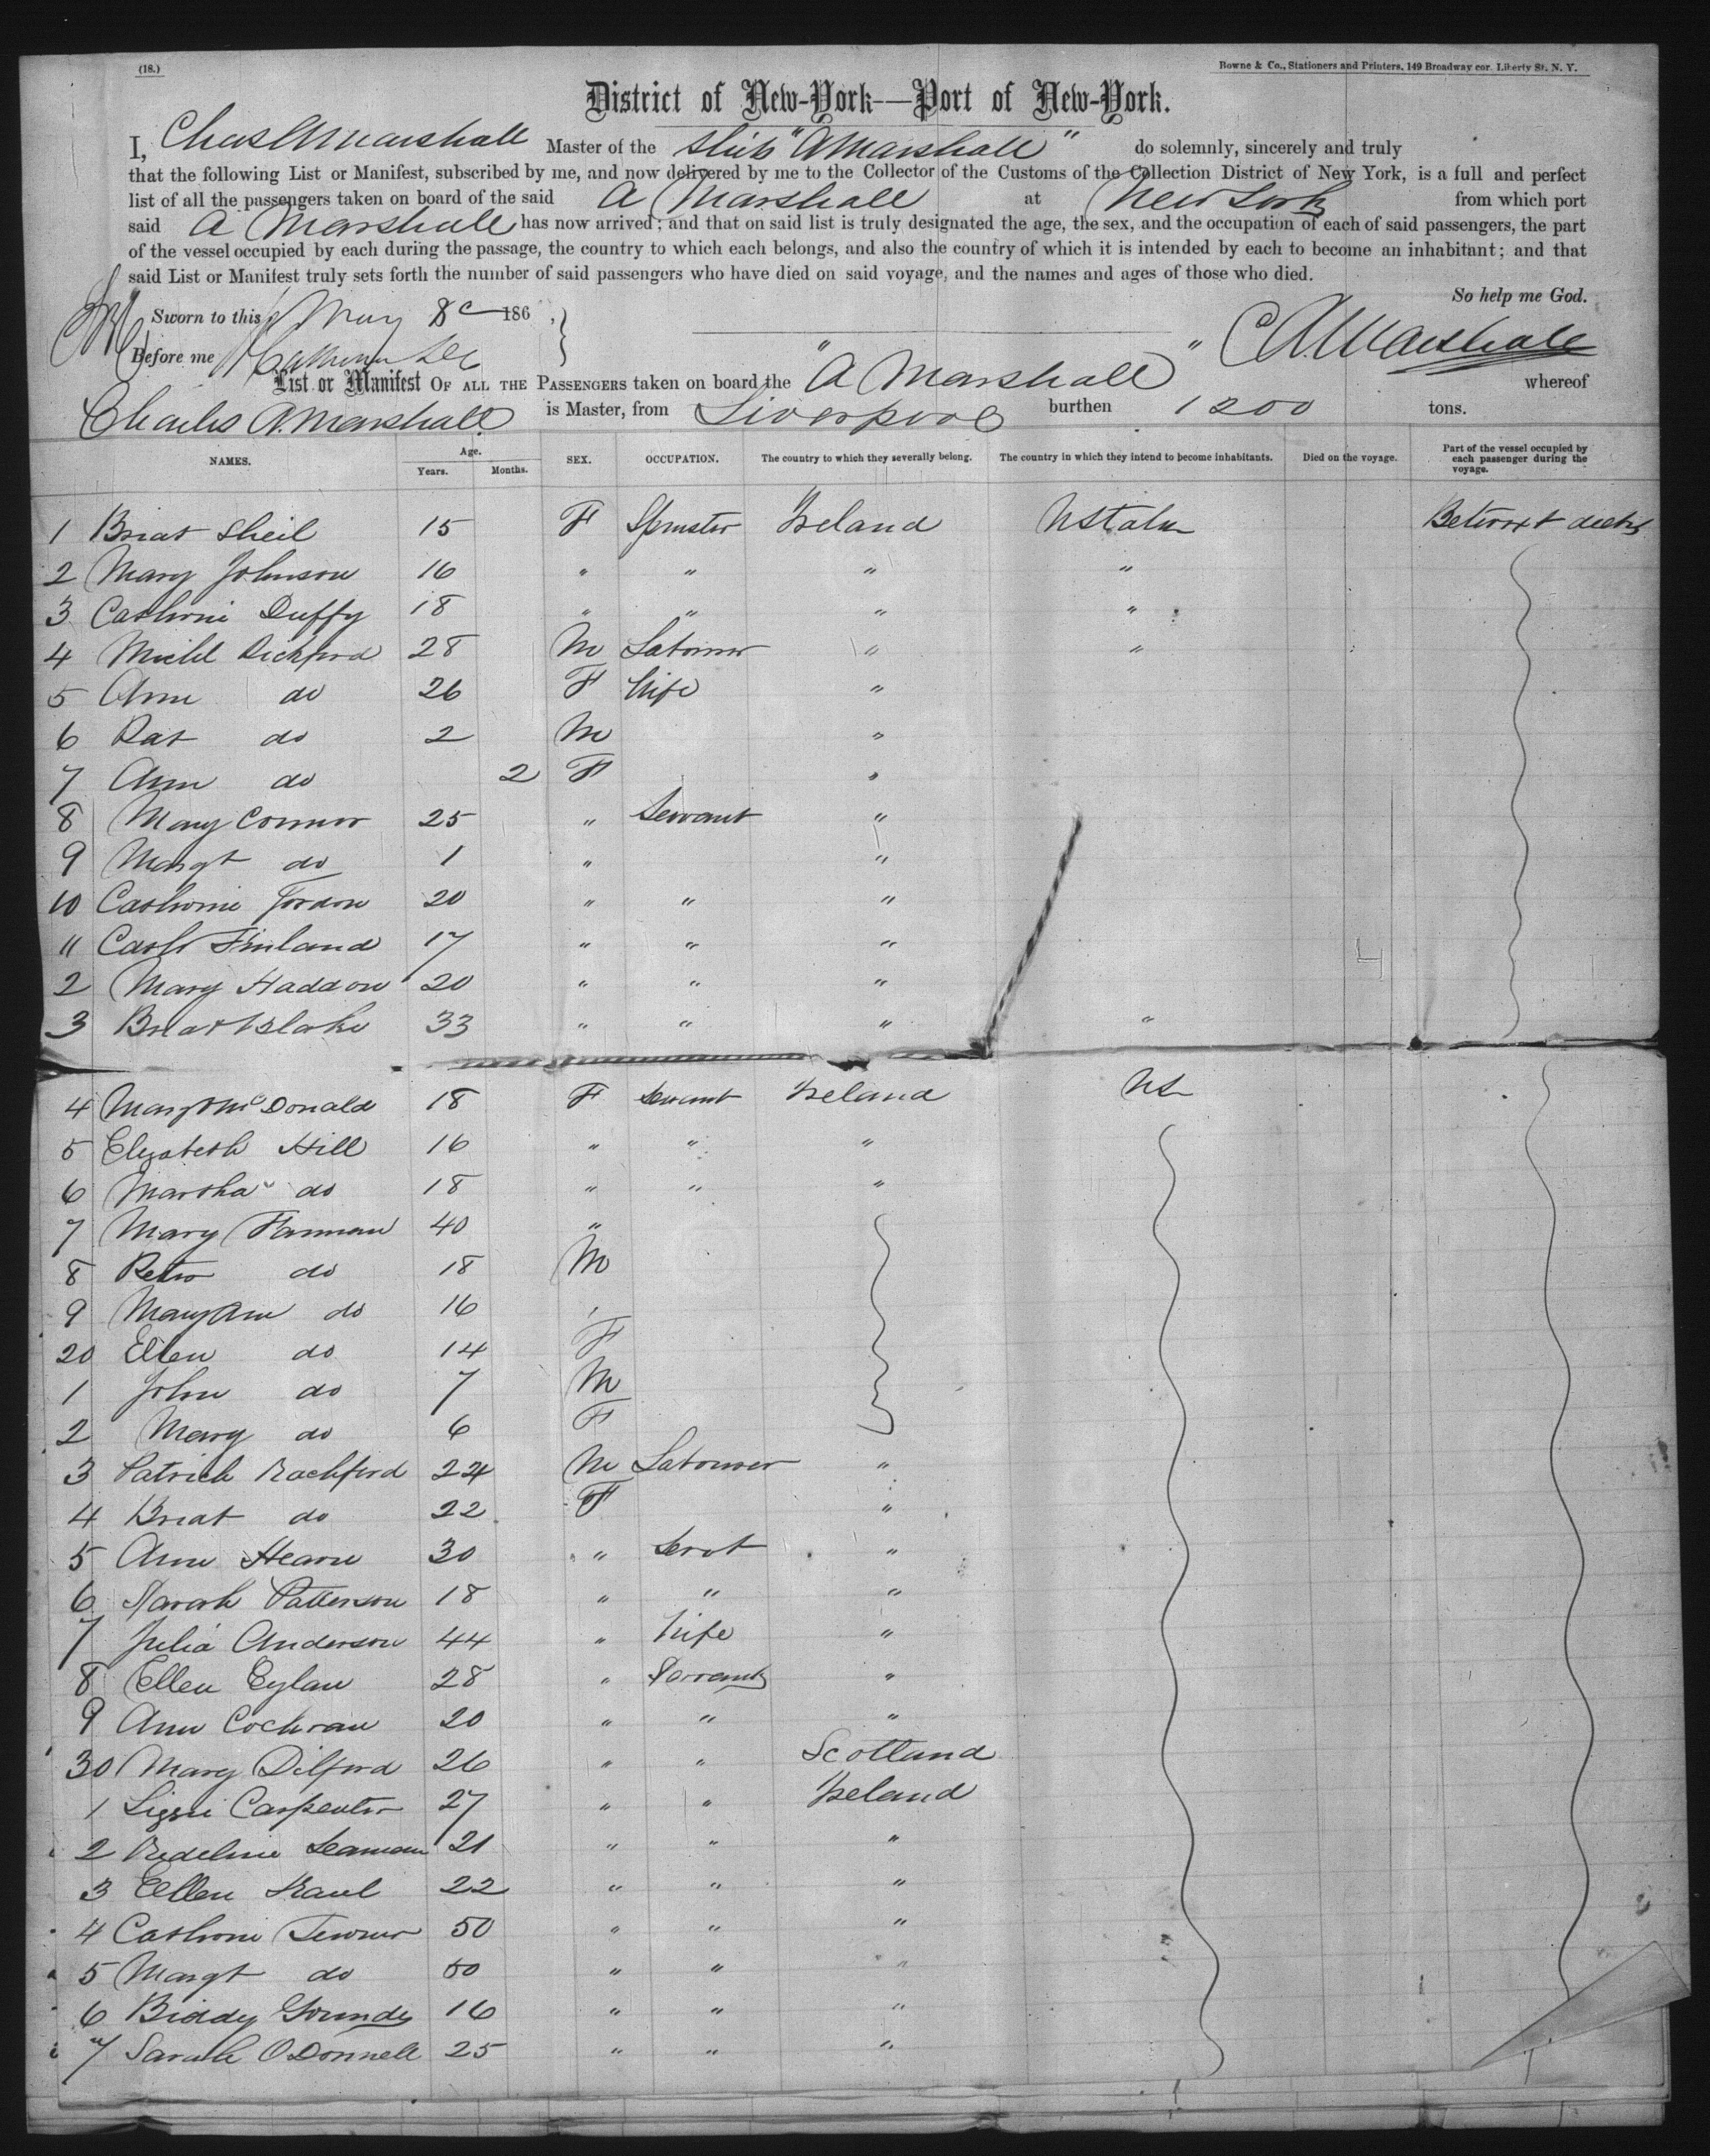 (18.)
Bowne & Co., Stationers and Printers, 149 Broadway cor. Liberty St. N. Y.
District of New-York—Port of New-York.
I, Chas A Marshall Master of the Ship "A Marshall" do solemnly, sincerely and truly
that the following List or Manifest, subscribed by me, and now delivered by me to the Collector of the Customs of the Collection District of New York, is a full and perfect
list of all the passengers taken on board of the said A Marshall at New York from which port
said A Marshall has now arrived; and that on said list is truly designated the age, the sex, and the occupation of each of said passengers, the part
of the vessel occupied by each during the passage, the country to which each belongs, and also the country of which it is intended by each to become an inhabitant; and that
said List or Manifest truly sets forth the number of said passengers who have died on said voyage, and the names and ages of those who died.
So help me God.
Sworn to this May 8 186 ,
Before me
C A Marshall
List or Manifest OF ALL THE PASSENGERS taken on board the "A Marshall" whereof
Charles A. Marshall is Master, from Liverpool burthen 1200 tons.
NAMES. Age. Years. Months. SEX. OCCUPATION. The country to which they severally belong. The country in which they intend to become inhabitants. Died on the voyage. Part of the vessel occupied by each passenger during the voyage.
1 Briat Sheil 15 F Spinster Ireland U States Betwixt decks
2 Mary Johnson 16 " " " "
3 Cathrine Duffy 18 " " " "
4 Michl 28 M Labourer " "
5 Ann do 26 F Wife "
6 Pat do 2 M "
7 Ann do 2 F "
8 Mary Connor 25 " Servant "
9 Margt do 1 " "
10 Cathrine 20 " " "
11 Cath Finland 17 " " "
2 Mary Haddon 20 " " "
3 Briat Blake 33 " " " "
4 Margt McDonald 18 F Servant Ireland US
5 Elizabeth Hill 16 " " "
6 Martha do 18 " " "
7 Mary Fannan 40 "
8 Peter do 18 M
9 Mary Ann do 16
20 Ellen do 14 F
1 John do 7 M
2 Mary do 6 F
3 Patrick Rachford 24 M Labourer "
4 Briat do 22 F "
5 Ann Hearn 30 " Servt "
6 Sarah Patterson 18 " " "
7 Julia Anderson 44 " Wife "
8 Ellen Eylan 28 " Servant "
9 Ann Cochran 20 " " "
30 Mary Dilford 26 " " Scotland
1 Lizzie Carpenter 27 " " Ireland
2 Seaman 21 " " "
3 Ellen 22 " " "
4 Cathrine 50 " " "
5 Margt do 50 " " "
6 Biddy 16 " " "
7 Sarah O Donnell 25 " " "